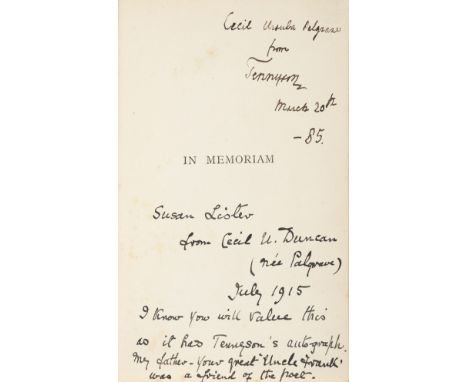 Cecil Ursula Palgrave
from
Tennyson
March 20th
-85.
IN MEMORIAM
Susan Lister
from Cecil U. Duncan
(née Palgrave)
July 1915
I know you will value this
as it has Tennyson's autograph.
My father - your great "Uncle Frank"
was a friend of the poet.